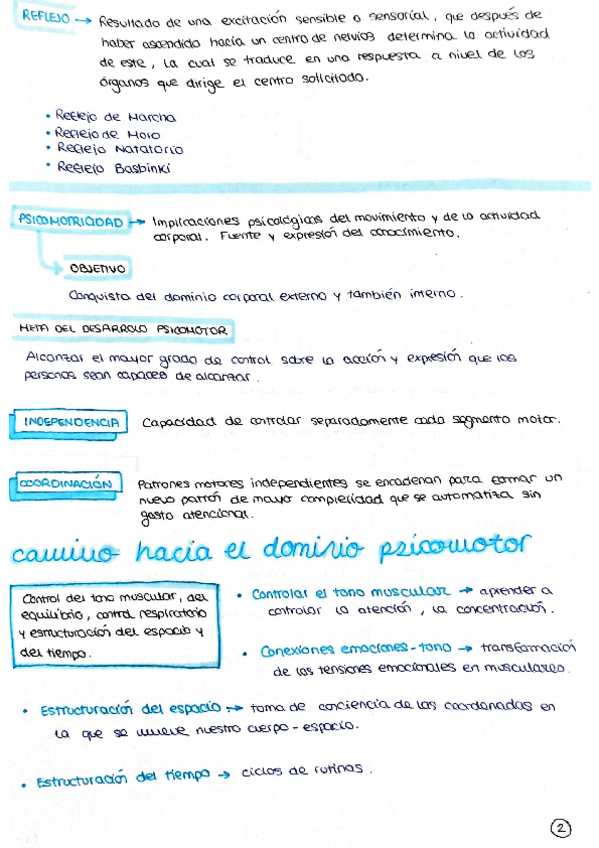 REFLEJO → Resultado de una excitación sensible o sensorial, que después de
haber ascendido hacia un centro de nervios determina la actividad
de este, la cual se traduce en una respuesta a nivel de los
órganos que dirige el centro solicitado.
• Reflejo de Marcha
• Reflejo de Moro
• Reflejo Natatorio
• Reflejo Basbinki
PSICOMOTRICIDAD → Implicaciones psicológicas del movimiento y de la actividad
corporal. Fuente y expresión del conocimiento.
→ OBJETIVO
Conquista del dominio corporal externo y también interno.
META DEL DESARROLLO PSICOMOTOR
Alcanzar el mayor grado de control sobre la acción y expresión que las
personas sean capaces de alcanzar.
INDEPENDENCIA Capacidad de controlar separadamente cada segmento motor.
COORDINACIÓN Patrones motores independientes se encadenan para formar un
nuevo patrón de mayor complejidad que se automatiza sin
gasto atencional.
camino hacia el dominio psicomotor
Control del tono muscular, del
equilibrio, control respiratorio
y estructuración del espacio y
del tiempo.
• Controlar el tono muscular → aprender a
controlar la atención, la concentración.
• Conexiones emociones-tono → transformación
de las tensiones emocionales en musculares.
• Estructuración del espacio → toma de conciencia de las coordenadas en
la que se mueve nuestro cuerpo-espacio.
• Estructuración del tiempo → ciclos de rutinas.
2